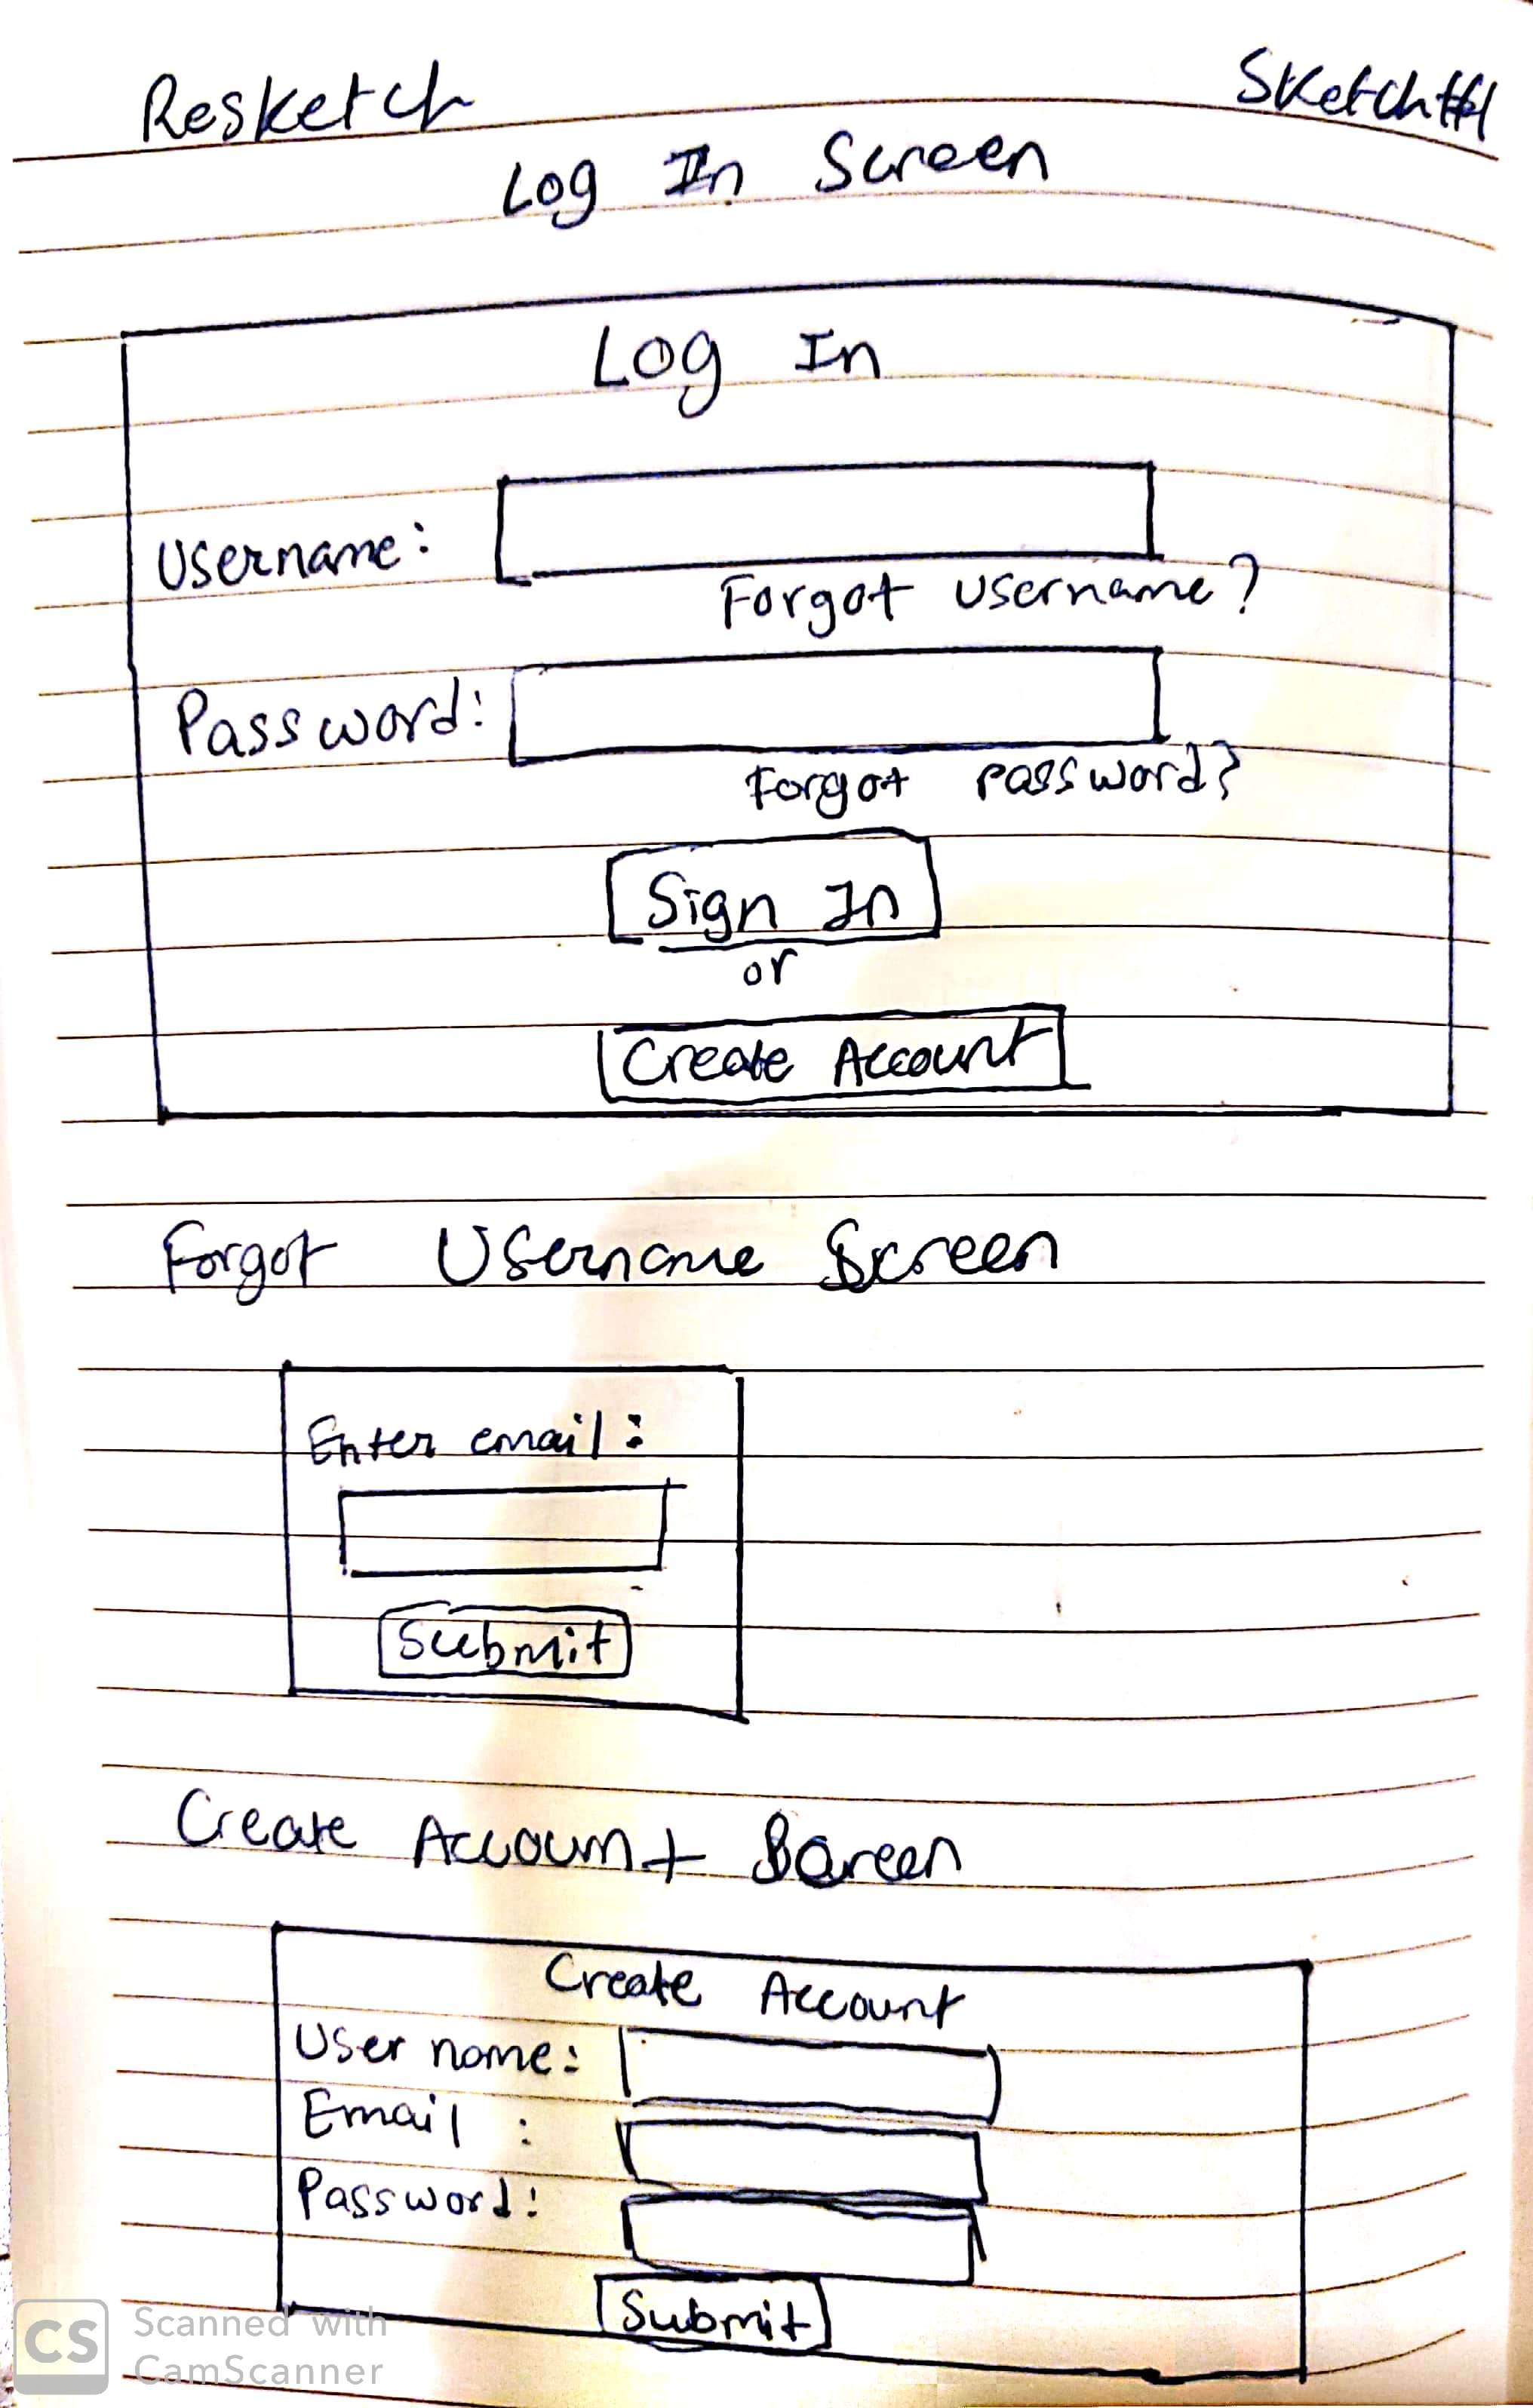 Resketch
Sketch#1
Log In Screen
Log In
Username:
Forgot username?
Password:
Forgot password?
Sign In
or
Create Account
Forgot Username Screen
Enter email:
Submit
Create Account Screen
Create Account
User name:
Email :
Password:
Submit
CS
Scanned with
CamScanner